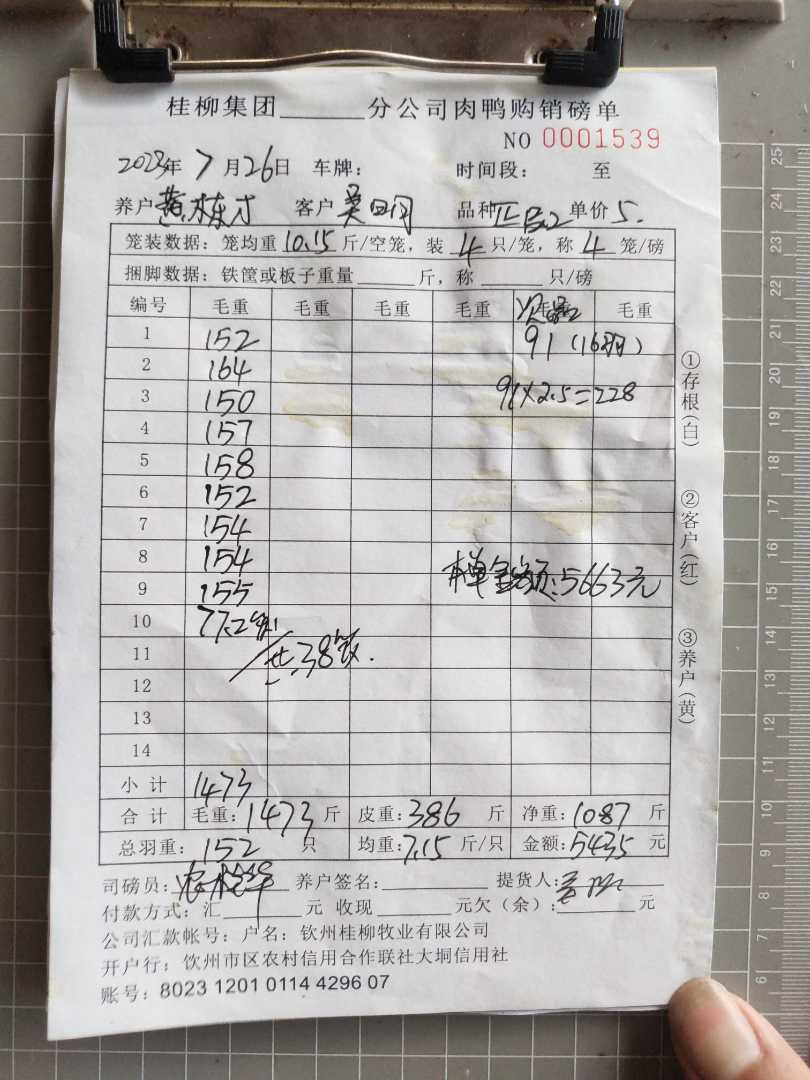 桂柳集团______分公司肉鸭购销磅单
NO 0001539
2023年 7月26日 车牌: 时间段: 至
养户 黄栋才 客户 吴 品种 正品2 单价 5.
笼装数据: 笼均重 10.15 斤/空笼, 装 4 只/笼, 称 4 笼/磅
捆脚数据: 铁筐或板子重量______斤, 称______只/磅
编号 毛重 毛重 毛重 毛重 毛重
1 152 91 (16羽)
2 164
3 150 91×2.5=228
4 157
5 158
6 152
7 154
8 154 本单金额:5663元
9 155
10 77.2
11 共38笼.
12
13
14
小计 1473
合计 毛重: 1473 斤 皮重: 386 斤 净重: 1087 斤
总羽重: 152 只 均重: 7.15 斤/只 金额: 5435 元
司磅员: 养户签名: 提货人:
付款方式: 汇______元 收现______元欠(余):______元
公司汇款帐号: 户名: 钦州桂柳牧业有限公司
开户行: 钦州市区农村信用合作联社大垌信用社
账号: 8023 1201 0114 4296 07
①存根(白)
②客户(红)
③养户(黄)
25
24
23
22
21
20
19
18
17
16
15
14
13
12
11
10
9
8
7
6